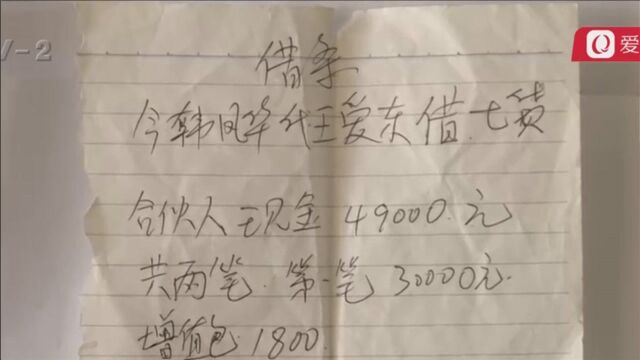 V-2
爱
借条
今韩凤华代王爱东借七货
合伙人现金49000.元
共两笔.第一笔30000元.
增值包.1800.